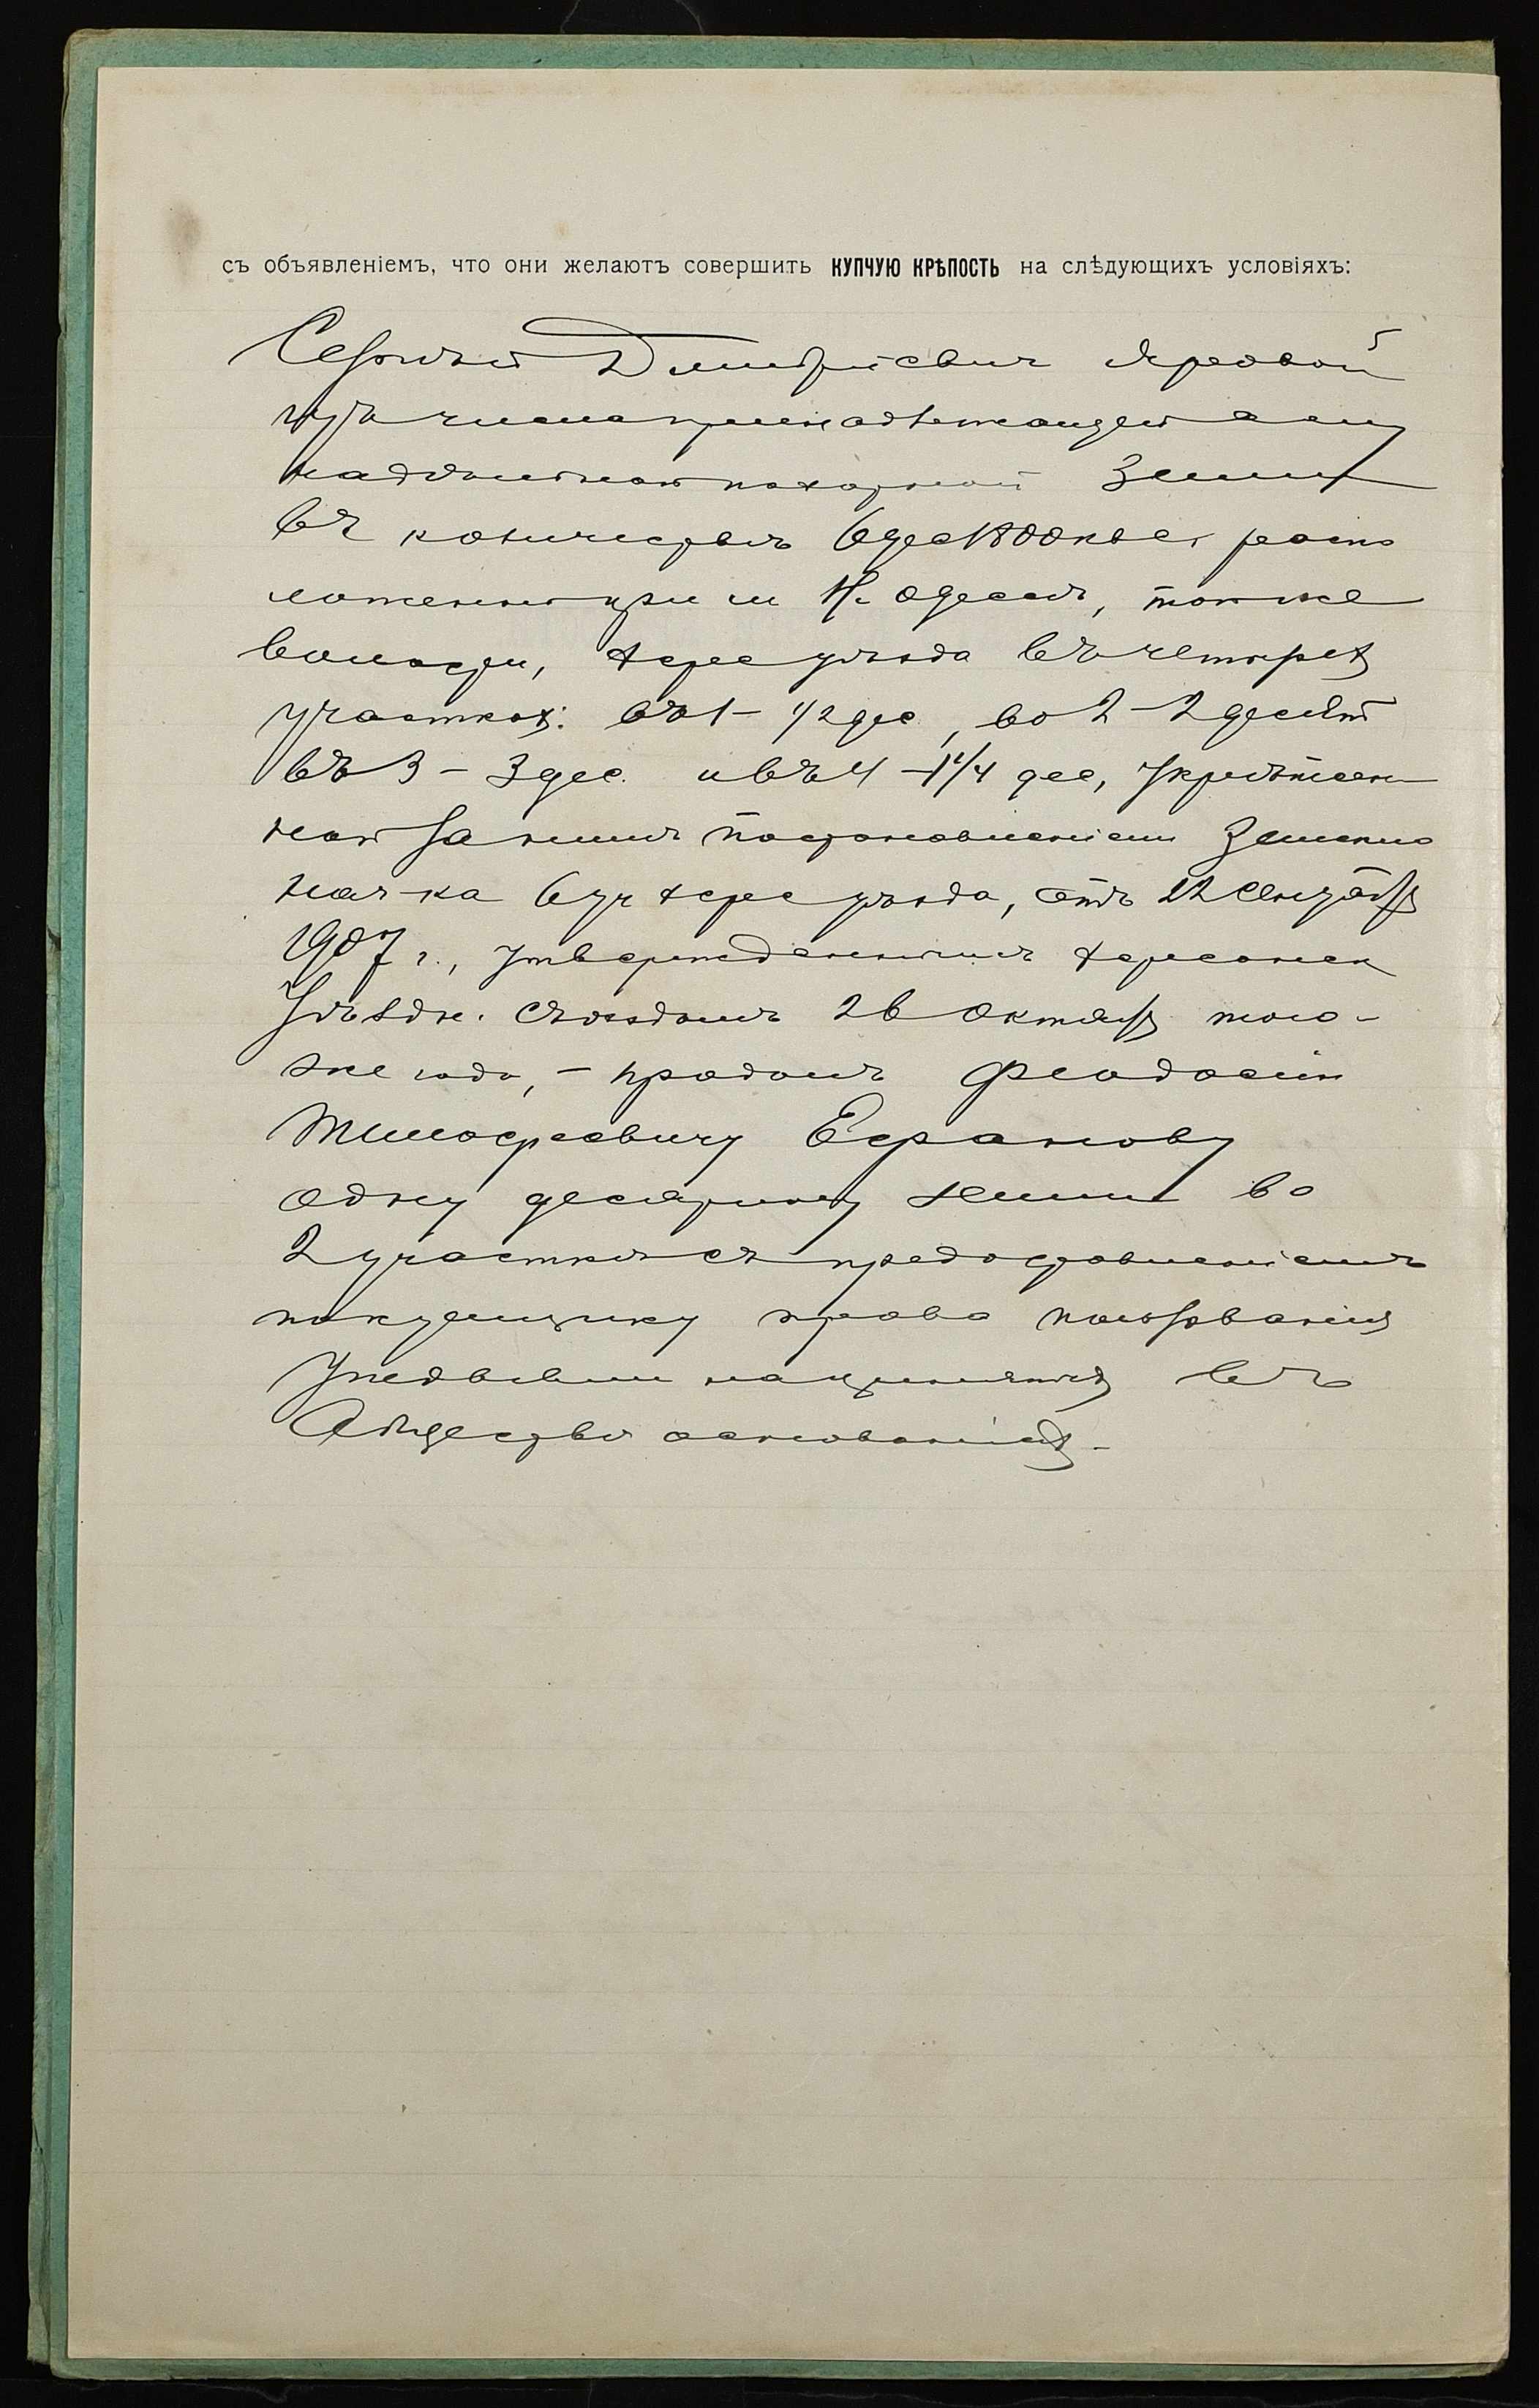 съ объявленіемъ, что они желаютъ совершить КУПЧУЮ КРѢПОСТЬ на слѣдующихъ условіяхъ:
Сергѣй Дмитріевич Яровой
изъ числа принадлежащей ему
надѣльной пахатной земли
въ количествѣ 6 дес 1800 кв с, распо
ложенной при м Н. Одессѣ, той же
волости, Херс уѣзда въ четырех
участках: въ 1 – 1/2 дес, во 2 – 2 десят
въ 3 – 3 дес. и въ 4 – 1 1/4 дес, укрѣплен
ной за ним постановленіем Земскаго
нач-ка 6 уч Херс уѣзда, отъ 22 Сентября
1907 г., утвержденнымъ Херсонск
Уѣздн. Съѣздомъ 26 Октября того-
же года, – продалъ Феодосію
Тимофеевичу
одну десятину земли во
2 участкѣ съ предоставленіемъ
покупщику права пользованія
усадьбами на принятых въ
Обществѣ основаніях –